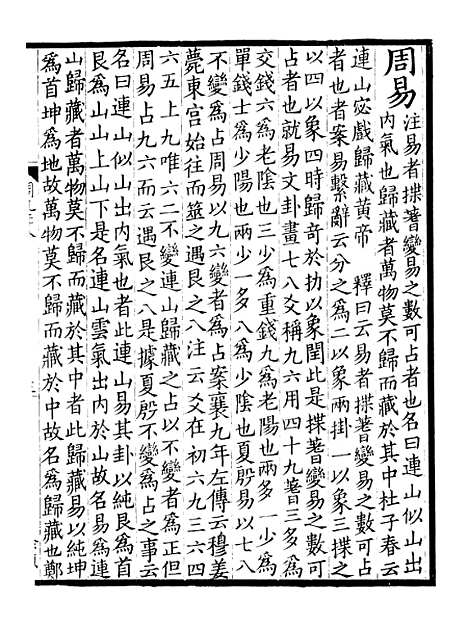 周易
注易者揲蓍變易之數可占者也名曰連山似山出
內氣也歸藏者萬物莫不歸而藏於其中杜子春云
連山宓戲歸藏黃帝　釋曰云易者揲蓍變易之數可占
者也者案易繫辭云分之爲二以象兩掛一以象三揲之
以四以象四時歸奇於扐以象閏此是揲蓍變易之數可
占者也就易文卦畫七八爻稱九六用四十九蓍三多爲
交錢六爲老陰也三少爲重錢九爲老陽也兩多一少爲
單錢士爲少陽也兩少一多八爲少陰也夏殷易以七八
不變爲占周易以九六變者爲占案襄九年左傳云穆姜
薨東宮始往而筮之遇艮之八注云爻在初六九三六四
六五上九唯六二不變連山歸藏之占以不變者爲正但
周易占九六而云遇艮之八是據夏殷不變爲占之事云
名曰連山似山出內氣也者此連山易其卦以純艮爲首
艮爲山山上山下是名連山雲氣出內於山故名易爲連
山歸藏者萬物莫不歸而藏於其中者此歸藏易以純坤
爲首坤爲地故萬物莫不歸而藏於中故名爲歸藏也鄭